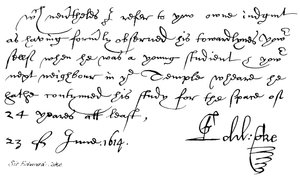 wch neuertheles I refer to yowr owne iudgmt
as having formrly observed his towardlynes yowr
self when he was a young student & yowr
next neighbour in ye Temple wheare he
hathe contynued his study for the space of
24 yeares att least,
23 of June. 1614.
Edw: Coke
Sir Edward Coke.